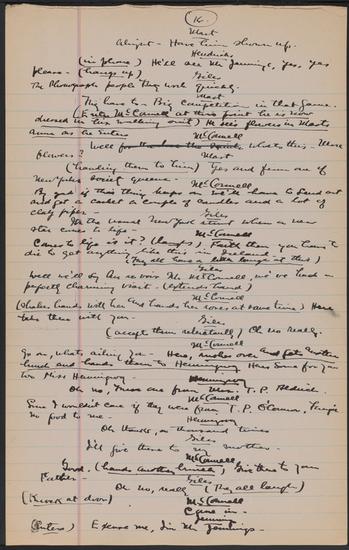 16.
Mast
Alright - Have him shown up.
Hendricks
(in phone) He'll see Mr Jennings, yes, yes
please - (hangs up)
Giles
The Phonograph people they work quickly.
Mast
They have to - Big competition in that game.
(Enter McConnell at this point he is now
dressed in his walking suit) sees flowers in Masts
arms as he enters
McConnell
Well what's this - More
flowers?
Mast
(handing them to him) Yes and from one of
New Yorks social queens -
McConnell
By God if this thing keeps on we'll have to send out
and get a casket a couple of candles and a lot of
clay pipes -
Giles
It's the usual New York stunt when a new
star comes to life -
McConnell
Comes to life is it? (laughs) Faith then you have to
die to get anything like this in Ireland
(They all have a little laugh at this)
Giles
Well we'll say Au revoir Mr McConnell, we've had a
perfectly charming visit - (extends hand)
McConnell
(shakes hands with her and hands her roses, at same time) Here
take these with you -
Giles
(accepts them reluctantly) Oh no really.
McConnell
Go on, whats ailing you - Here, rushes over and gets another
bunch and hands them to Hemingway Here Some for you
too Miss Hemingway
Hemingway
Oh no, these are from T. P. Aldrich.
McConnell
Sure I wouldn't care if they were from T. P. O'Connor,
no good to me -
Hemingway
Oh thanks, a thousand times
Giles
I'll give these to my mother -
McConnell
Good. (hands another bunch) Give these to your
Father -
Giles
Oh no, really (They all laugh)
(Knock at door)
McConnell
Come in -
Jennings
(Enters) Excuse me, I'm Mr Jennings -